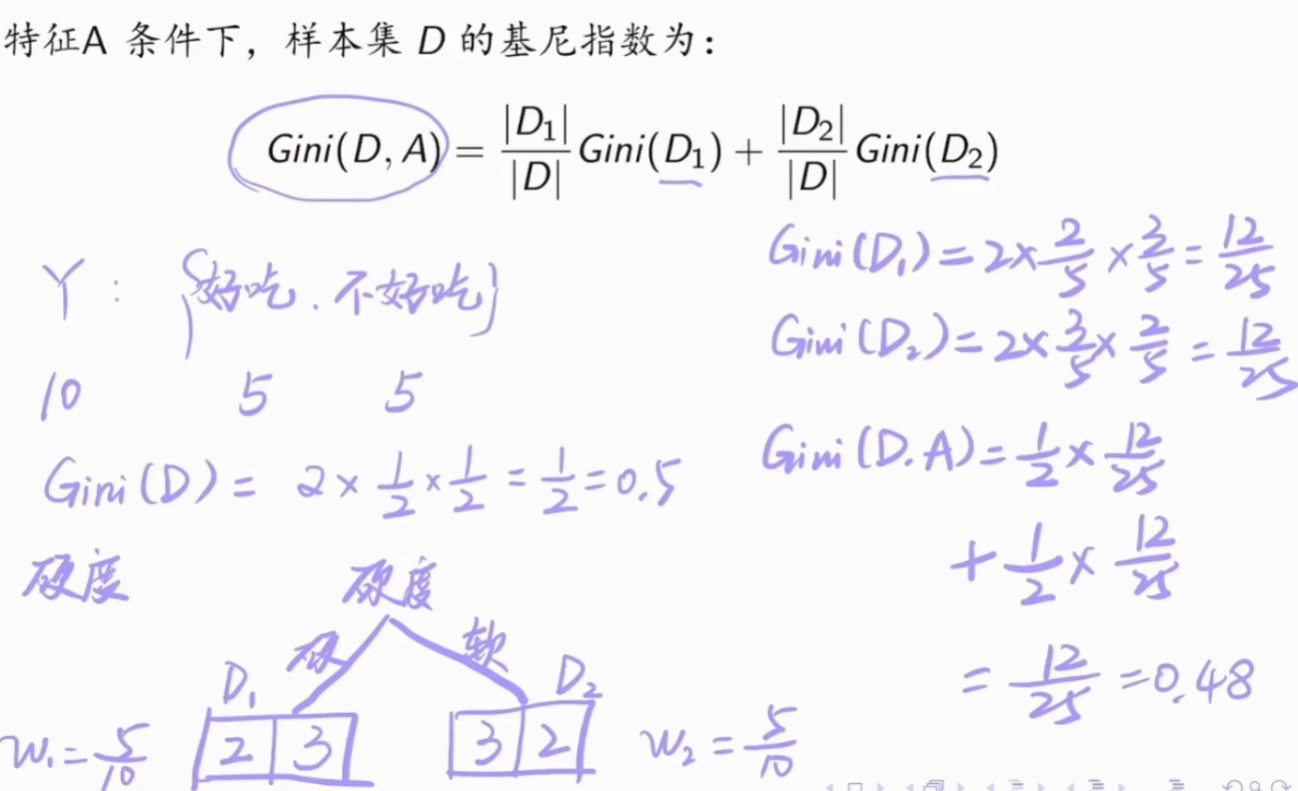 特征A 条件下，样本集 D 的基尼指数为：
Gini(D, A) = |D₁|/|D| Gini(D₁) + |D₂|/|D| Gini(D₂)
Y : {好吃. 不好吃}
10 5 5
Gini(D) = 2 × 1/2 × 1/2 = 1/2 = 0.5
硬度
硬度
硬 软
D₁ D₂
W₁ = 5/10 2 3 3 2 W₂ = 5/10
Gini(D₁) = 2 × 2/5 × 3/5 = 12/25
Gini(D₂) = 2 × 3/5 × 2/5 = 12/25
Gini(D.A) = 1/2 × 12/25
+ 1/2 × 12/25
= 12/25 = 0.48